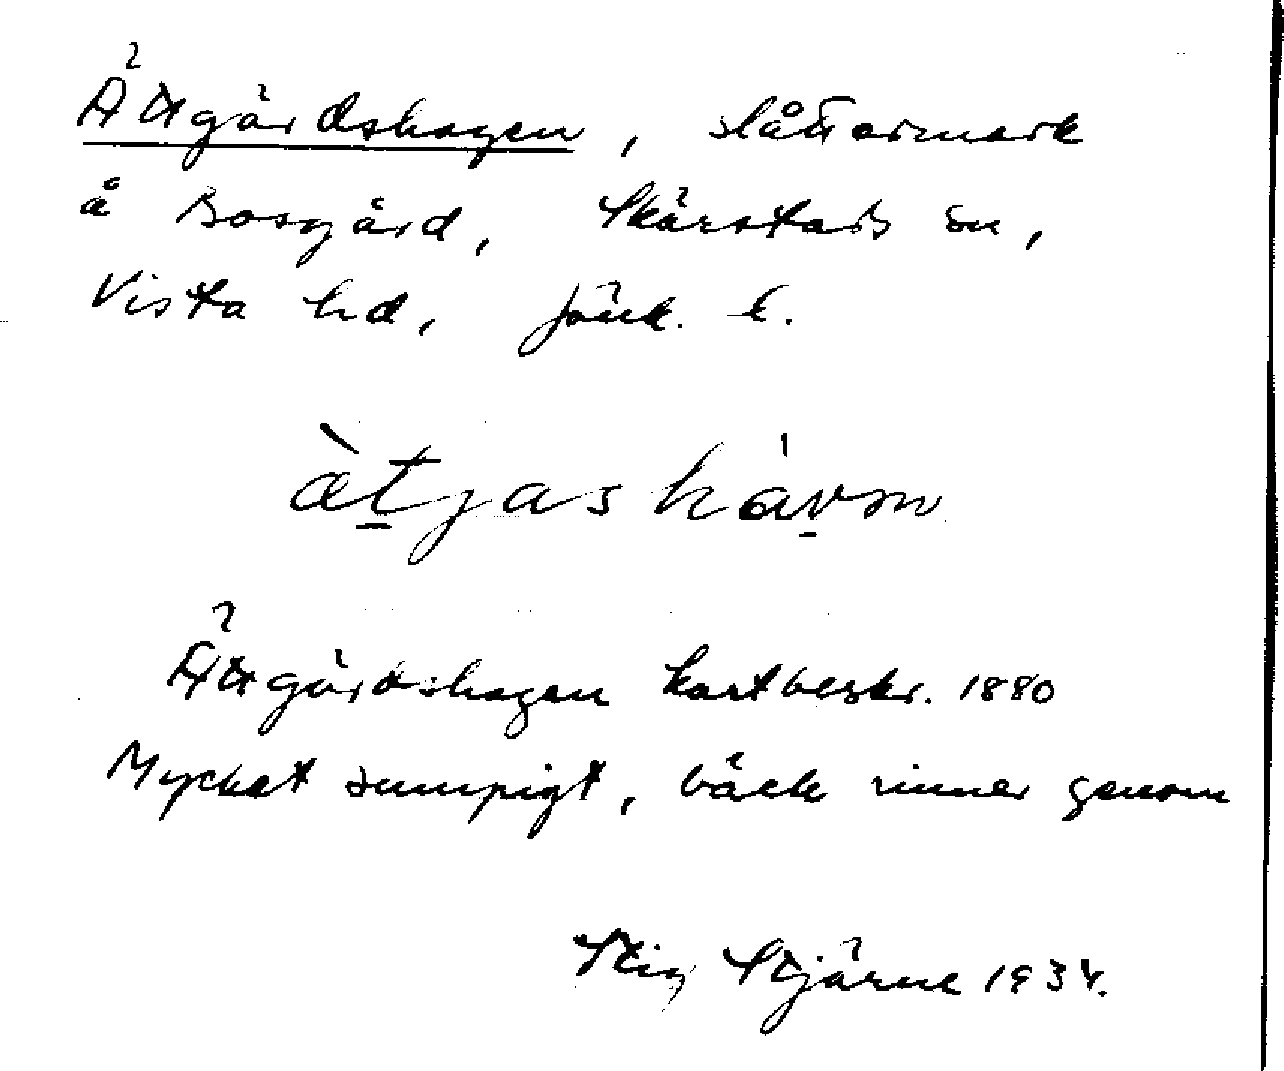 Ättgärdshagen, slåttermark
å Bosgård, Skärstads sn,
Vista hd, Jönk. l.
ætjashavm
Ättgärdshagen kartbeskr. 1880
Mycket sumpigt, bäck rinner genom
Stig Stjärne 1934.